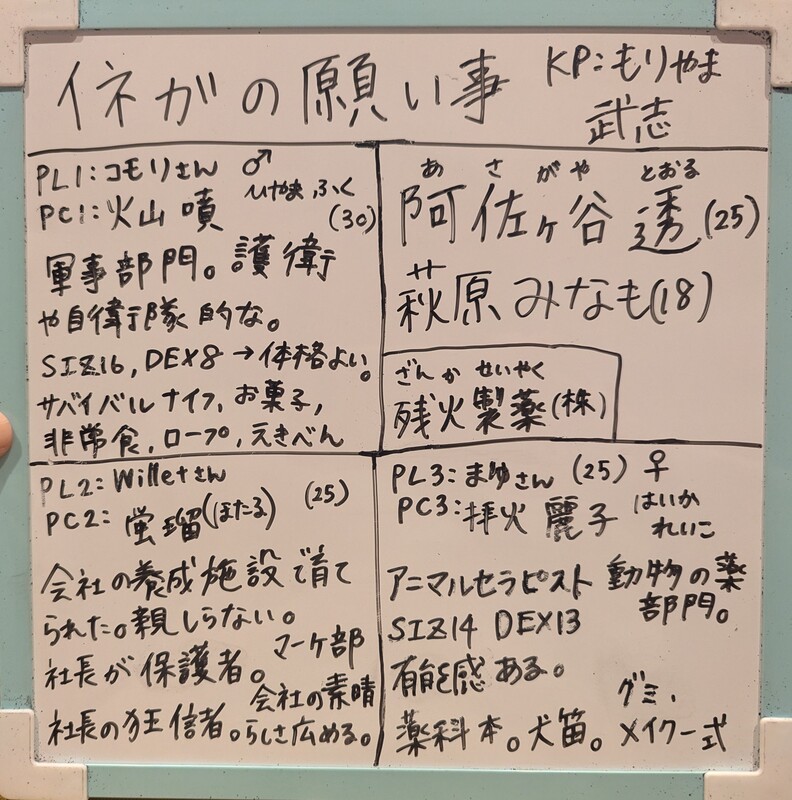 イネガの願い事
KP:もりやま
武志
PL1:コモリさん ♂
PC1:火山 噴 ひやま ふく
(30)
軍事部門。護衛
や自衛隊的な。
SIZ16, DEX8 →体格よい。
サバイバルナイフ, お菓子,
非常食, ロープ, えきべん
あさがや とおる
阿佐ヶ谷 透(25)
萩原みなも(18)
ざんか せいやく
残火製薬(株)
PL2:Willetさん
PC2:蛍瑠(ほたる) (25)
会社の養成施設で育て
られた。親しらない。
社長が保護者。 マーケ部
社長の狂信者。会社の素晴
らしさ広める。
PL3:まゆさん (25) ♀
PC3:拝火 麗子 はいか
れいこ
アニマルセラピスト 動物の薬
部門。
SIZ14 DEX13
有能感ある。
薬科本。犬笛。グミ、
メイク一式